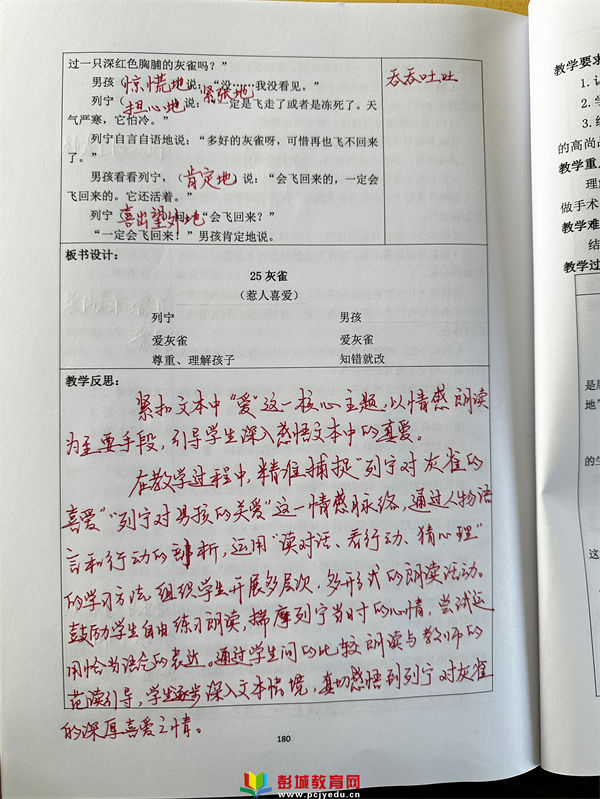 过一只深红色胸脯的灰雀吗？”
男孩（惊慌地 说：“没……我没看见。”
吞吞吐吐
紧张地
列宁（担心地 说：“一定是飞走了或者是冻死了。天
气严寒，它怕冷。”
列宁自言自语地说：“多好的灰雀呀，可惜再也飞不回来
了。”
男孩看看列宁，（肯定地 说：“会飞回来的，一定会
飞回来的。它还活着。”
列宁 喜出望外地 问：“会飞回来？”
“一定会飞回来！”男孩肯定地说。
板书设计：
25 灰雀
（惹人喜爱）
列宁 男孩
爱灰雀 爱灰雀
尊重、理解孩子 知错就改
教学反思：
紧扣文本中“爱”这一核心主题，以情感朗读
为主要手段，引导学生深入感悟文本中的真爱。
在教学过程中，精准捕捉“列宁对灰雀的
喜爱”“列宁对男孩的关爱”这一情感脉络，通过人物语
言和行动的剖析，运用“读对话、看行动、猜心理”
的学习方法，组织学生开展多层次，多形式的朗读活动。
鼓励学生自由练习朗读，揣摩列宁当时的心情，尝试运
用恰当语气的表达。通过学生间的比较朗读与教师的
范读引导，学生逐步深入文本情境，真切感悟到列宁对灰雀
的深厚喜爱之情。
180
教学要求
1.
2.
3.
的高尚
教学重
理
做手术
教学难
结
教学过
是
地”
的生
这
彭城教育网
www.pcjyedu.cn